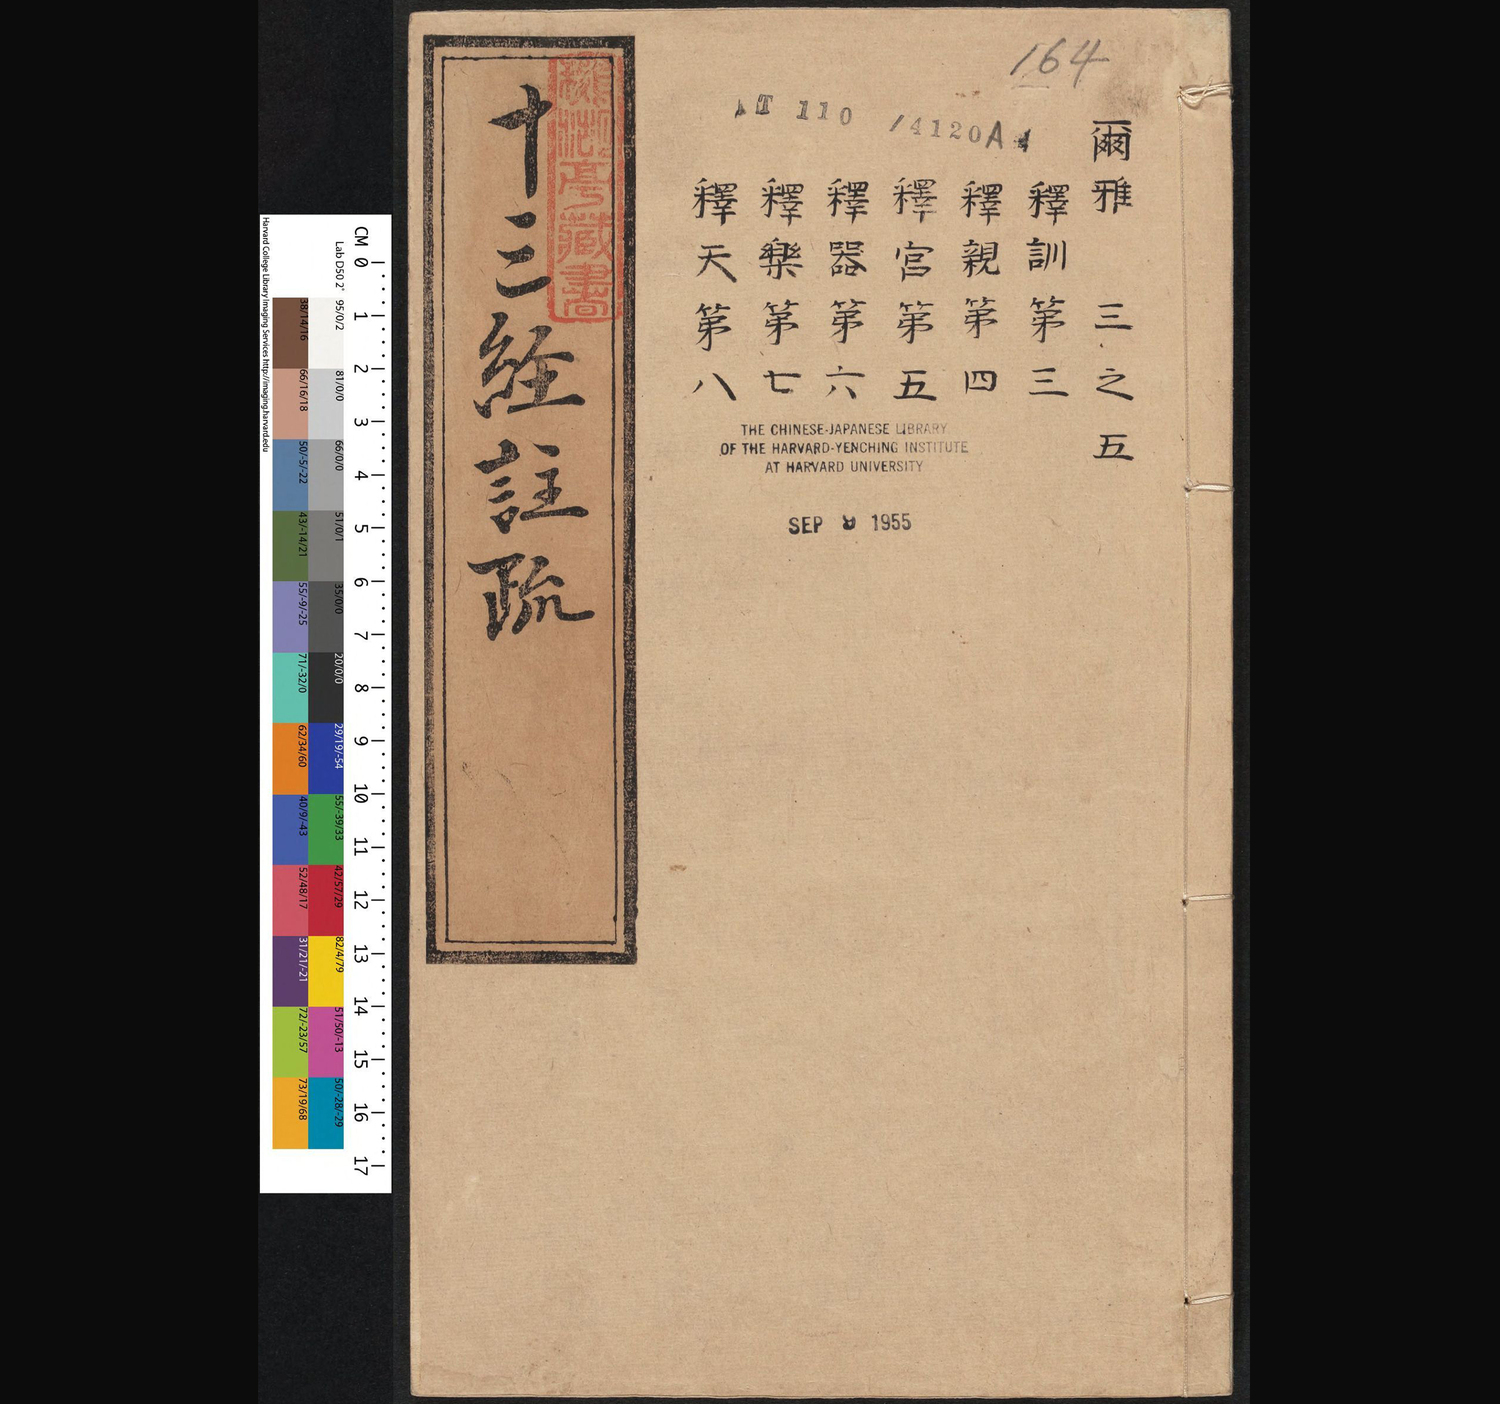 164
T 110 /4120A
爾雅 三之五
釋訓第三
釋親第四
釋宮第五
釋器第六
釋樂第七
釋天第八
THE CHINESE-JAPANESE LIBRARY
OF THE HARVARD-YENCHING INSTITUTE
AT HARVARD UNIVERSITY
SEP 9 1955
十三經註疏
亭藏書
CM 0 1 2 3 4 5 6 7 8 9 10 11 12 13 14 15 16 17
Lab D50 2°
95/0/2
81/0/0
66/0/0
51/0/1
35/0/0
20/0/0
29/19/-54
55/-39/33
42/57/29
82/4/79
51/50/-13
50/-28/-29
38/14/16
66/16/18
50/-5/-22
43/-14/21
55/-9/-25
71/-32/0
62/34/60
40/9/-43
52/48/17
31/21/-21
72/-23/57
73/19/68
Harvard College Library Imaging Services http://imaging.harvard.edu